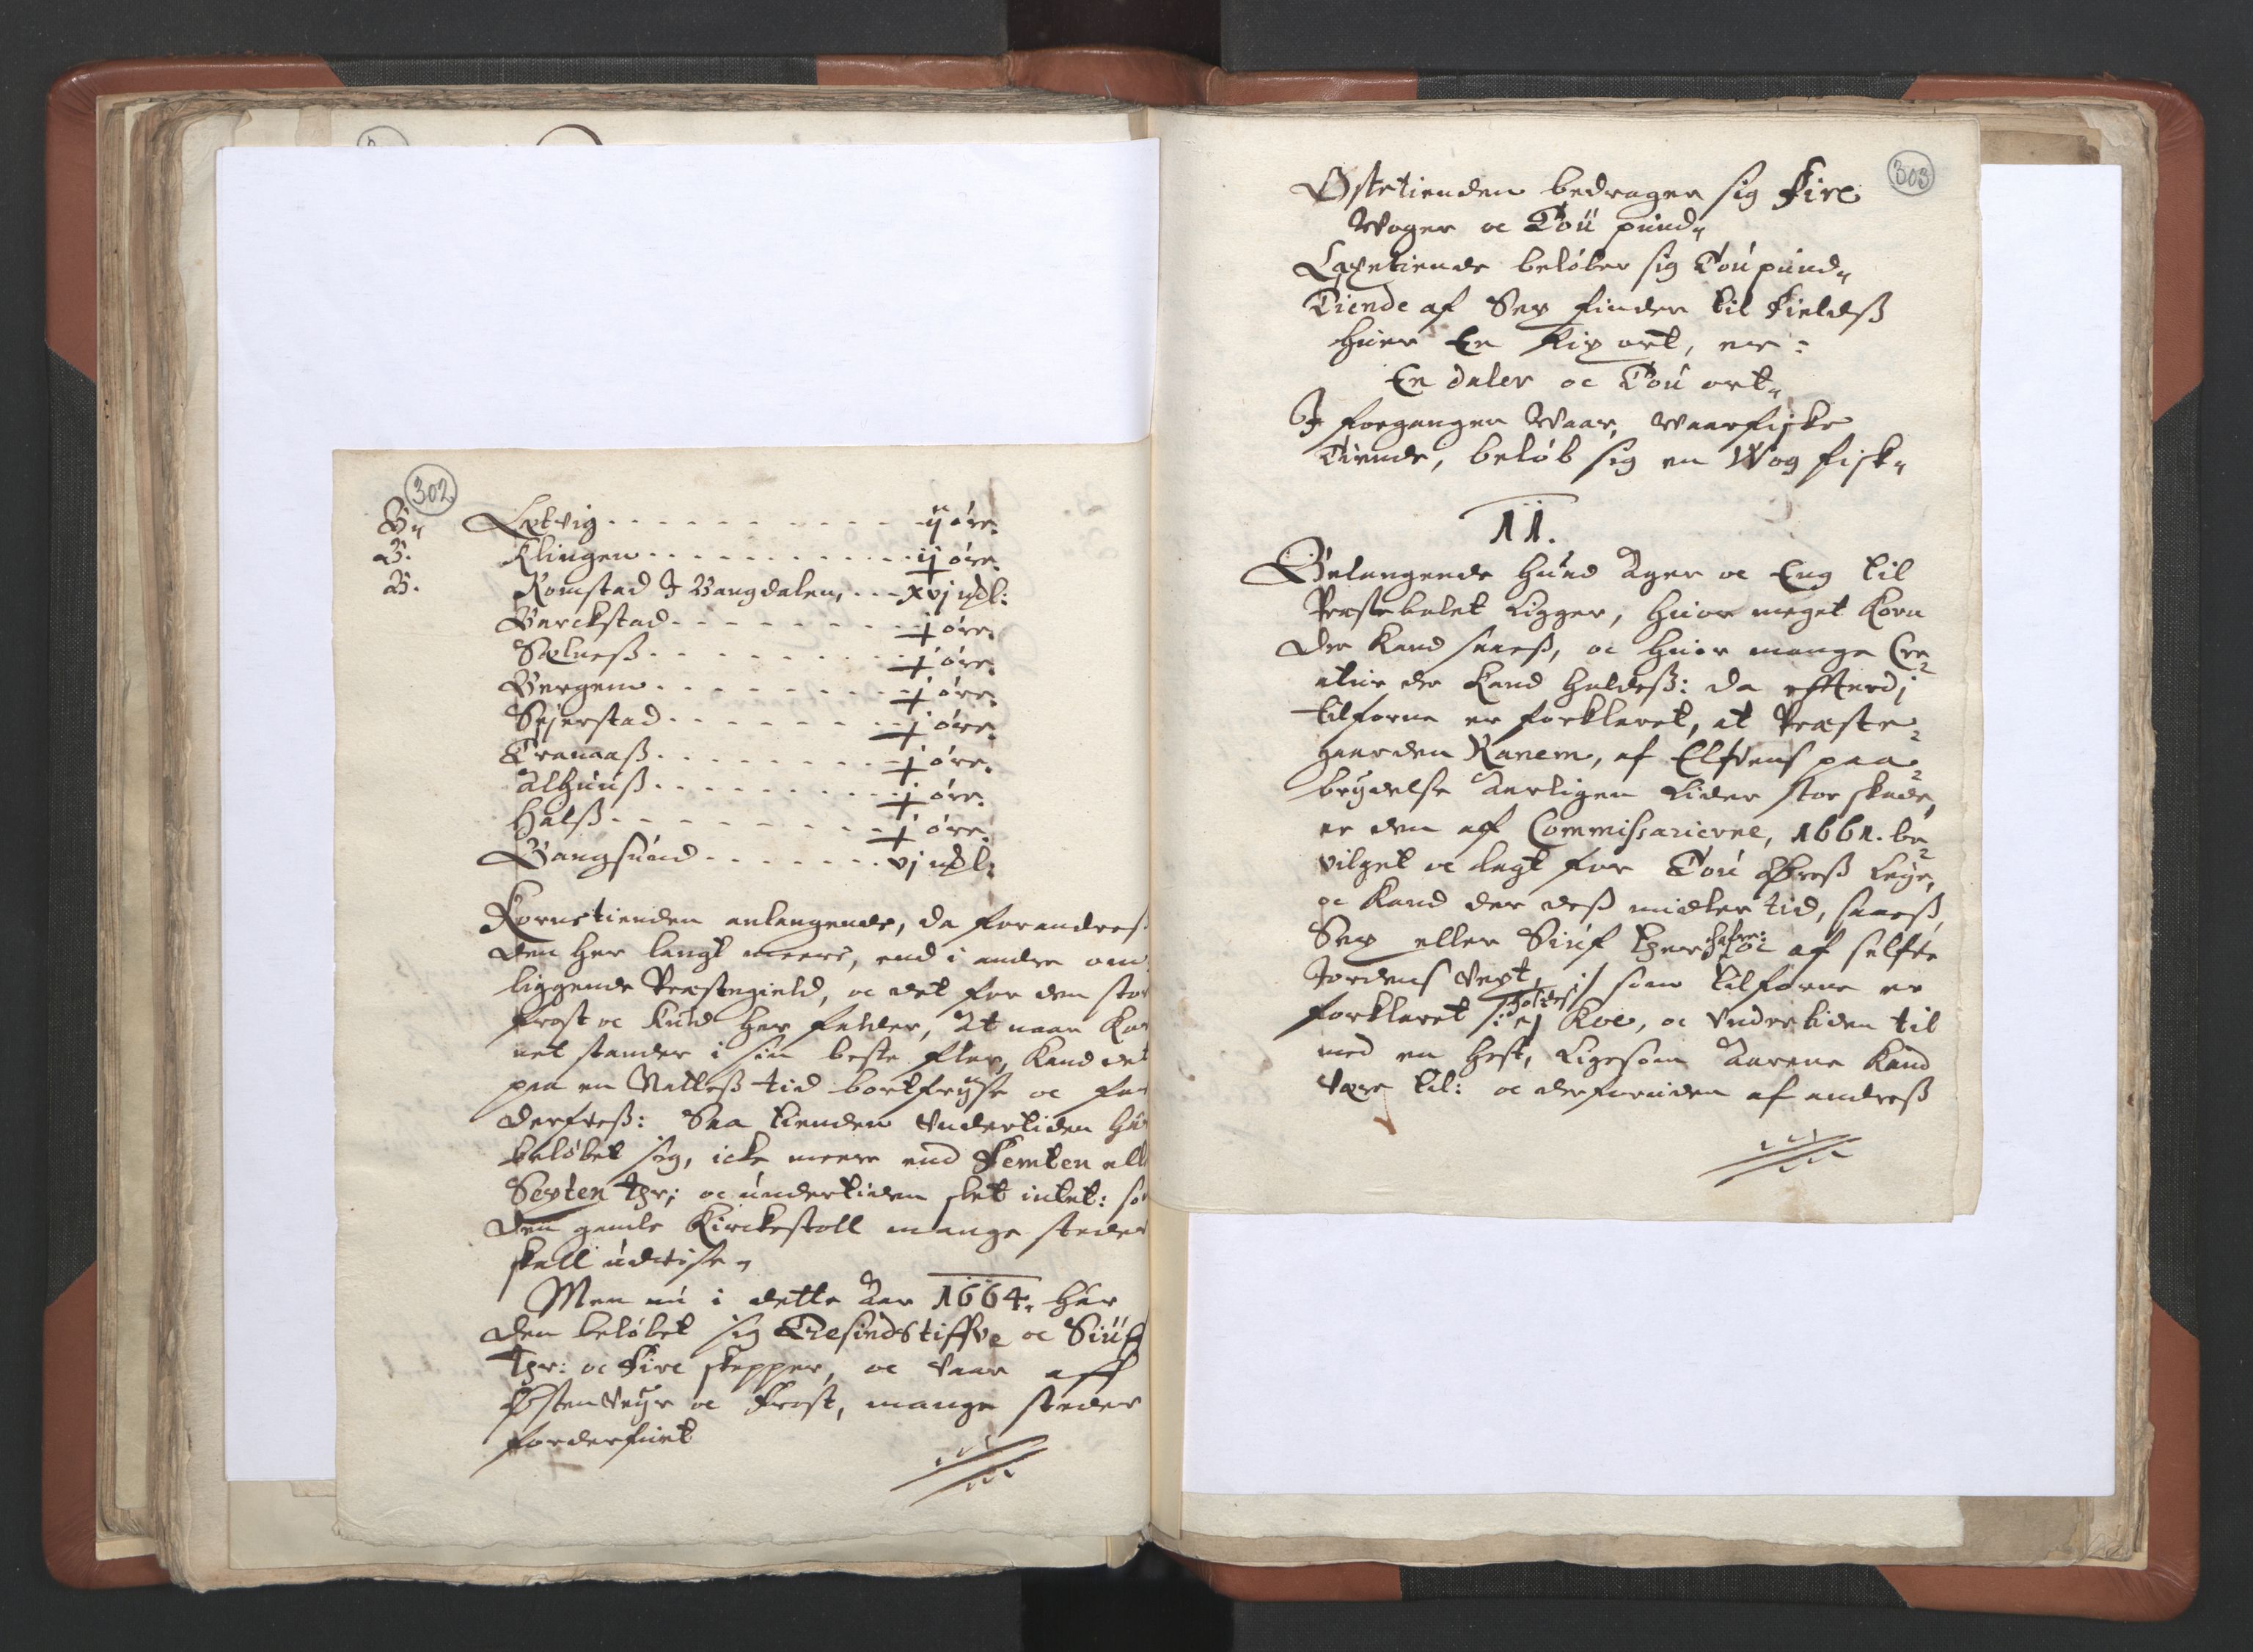 302
B. Lætvig - - - - - - - - - - ij øre.
B. Klingen - - - - - - - - - - ij øre.
B. Romstad J Vangdalen, - - - xvj mkl:
Barckstad - - - - - - - - - j øre.
Sælneß - - - - - - - - - j øre.
Bergem - - - - - - - - - j øre.
Sejerstad - - - - - - - - j øre.
Tranaaß - - - - - - - - - j øre.
Alhuuß - - - - - - - - - j øre.
Halß - - - - - - - - - j øre.
Bangsund - - - - - - - vj mkl:
Kornetienden anlangende, da forandres
den her langt meere, end i andre om
liggende Præstegield, oc det for den stor
frost oc Kuld her falder, At naar Kor
net stander i sin beste flor, Kand det
paa en Natteß tid bortfryse oc for
derfveß: Saa tienden Vndertiden haf
beløbet sig, icke meere end Femten elle
Sexten tdr; oc undertiden slet intet: som
den gamle Kirckestoll mange steder
skall udvise,
Men nu i dette Aar 1664. har
den beløbet sig Tresindstiffve oc Siuf
Tdr: oc Fire skepper, oc Vaar aff
Østen Veyr oc Frost, mange steder
forderfuet
303
Ostetienden bedrager sig Fire
Woger oc Tou pund,
Laxetiende beløber sig Tou pund,
Tiende af Sex finder til Fieldß
huer En Rix ort, er:
En daler oc Tou ort,
J forgangen Waar, Waarfiske
Tiende, beløb sig en Wog fisk,
11.
Belangende huad Ager oc Eng til
Præstebolet ligger, huor meget Korn
der Kand saaeß, oc huor mange Cre-
atur der Kand holdeß: da effterdj
tilforne er forklaret, at Præste-
gaarden Ranem, af Elfvens paa-
brydelse Aarligen lider stor skade,
er den aff Commissarierne, 1661. be-
vilget oc lagt for Tou Øreß Leye,
oc Kand der deß midler tid, saaeß
Sex eller Siuf tynder hafre: oc af selfve
Jordens Vext, :/ som tilforne er
forklaret /: holdes ej Koe, oc Vnder tiden til
med en hest, Ligesom Aarene Kand
Være til: oc desforuden af andreß